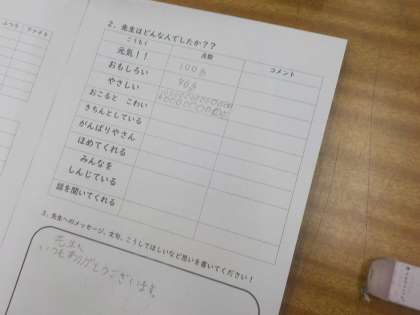 ふつう ファイト
2. 先生はどんな人でしたか？？
こうもく 点数 コメント
元気！！ 100点
おもしろい 90点
やさしい
おこると こわい
きちんとしている
がんばりやさん
ほめてくれる
みんなを
しんじている
話を聞いてくれる
3. 先生へのメッセージ、文句、こうしてほしいなど思いを書いてください！
先生
いつもありがとうございます。